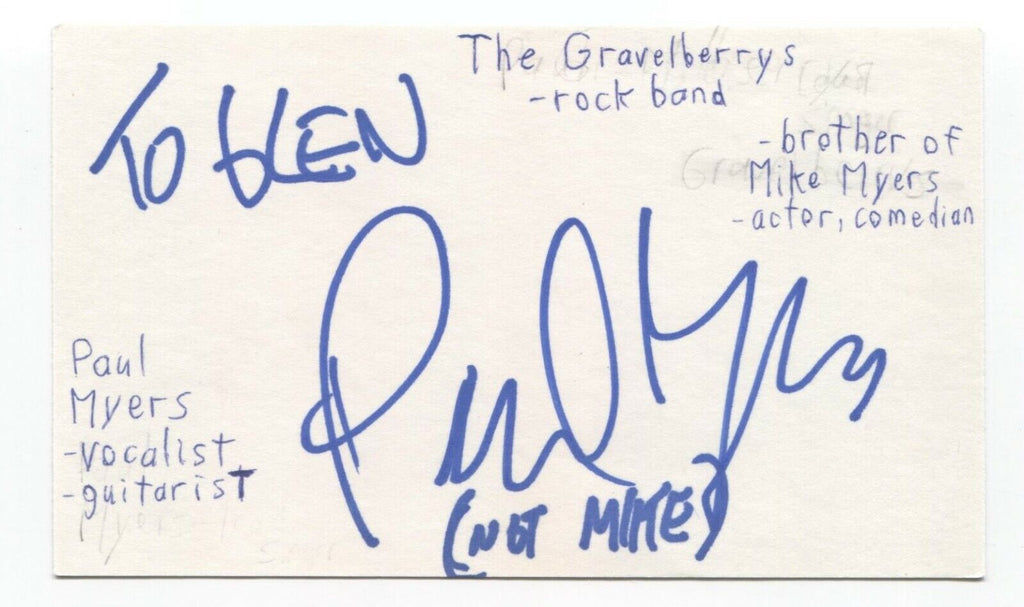 The Gravelberrys
-rock band
TO GLEN
-brother of
Mike Myers
-actor, comedian
Paul Myers
Paul
Myers
-vocalist
-guitarist
(NOT MIKE)